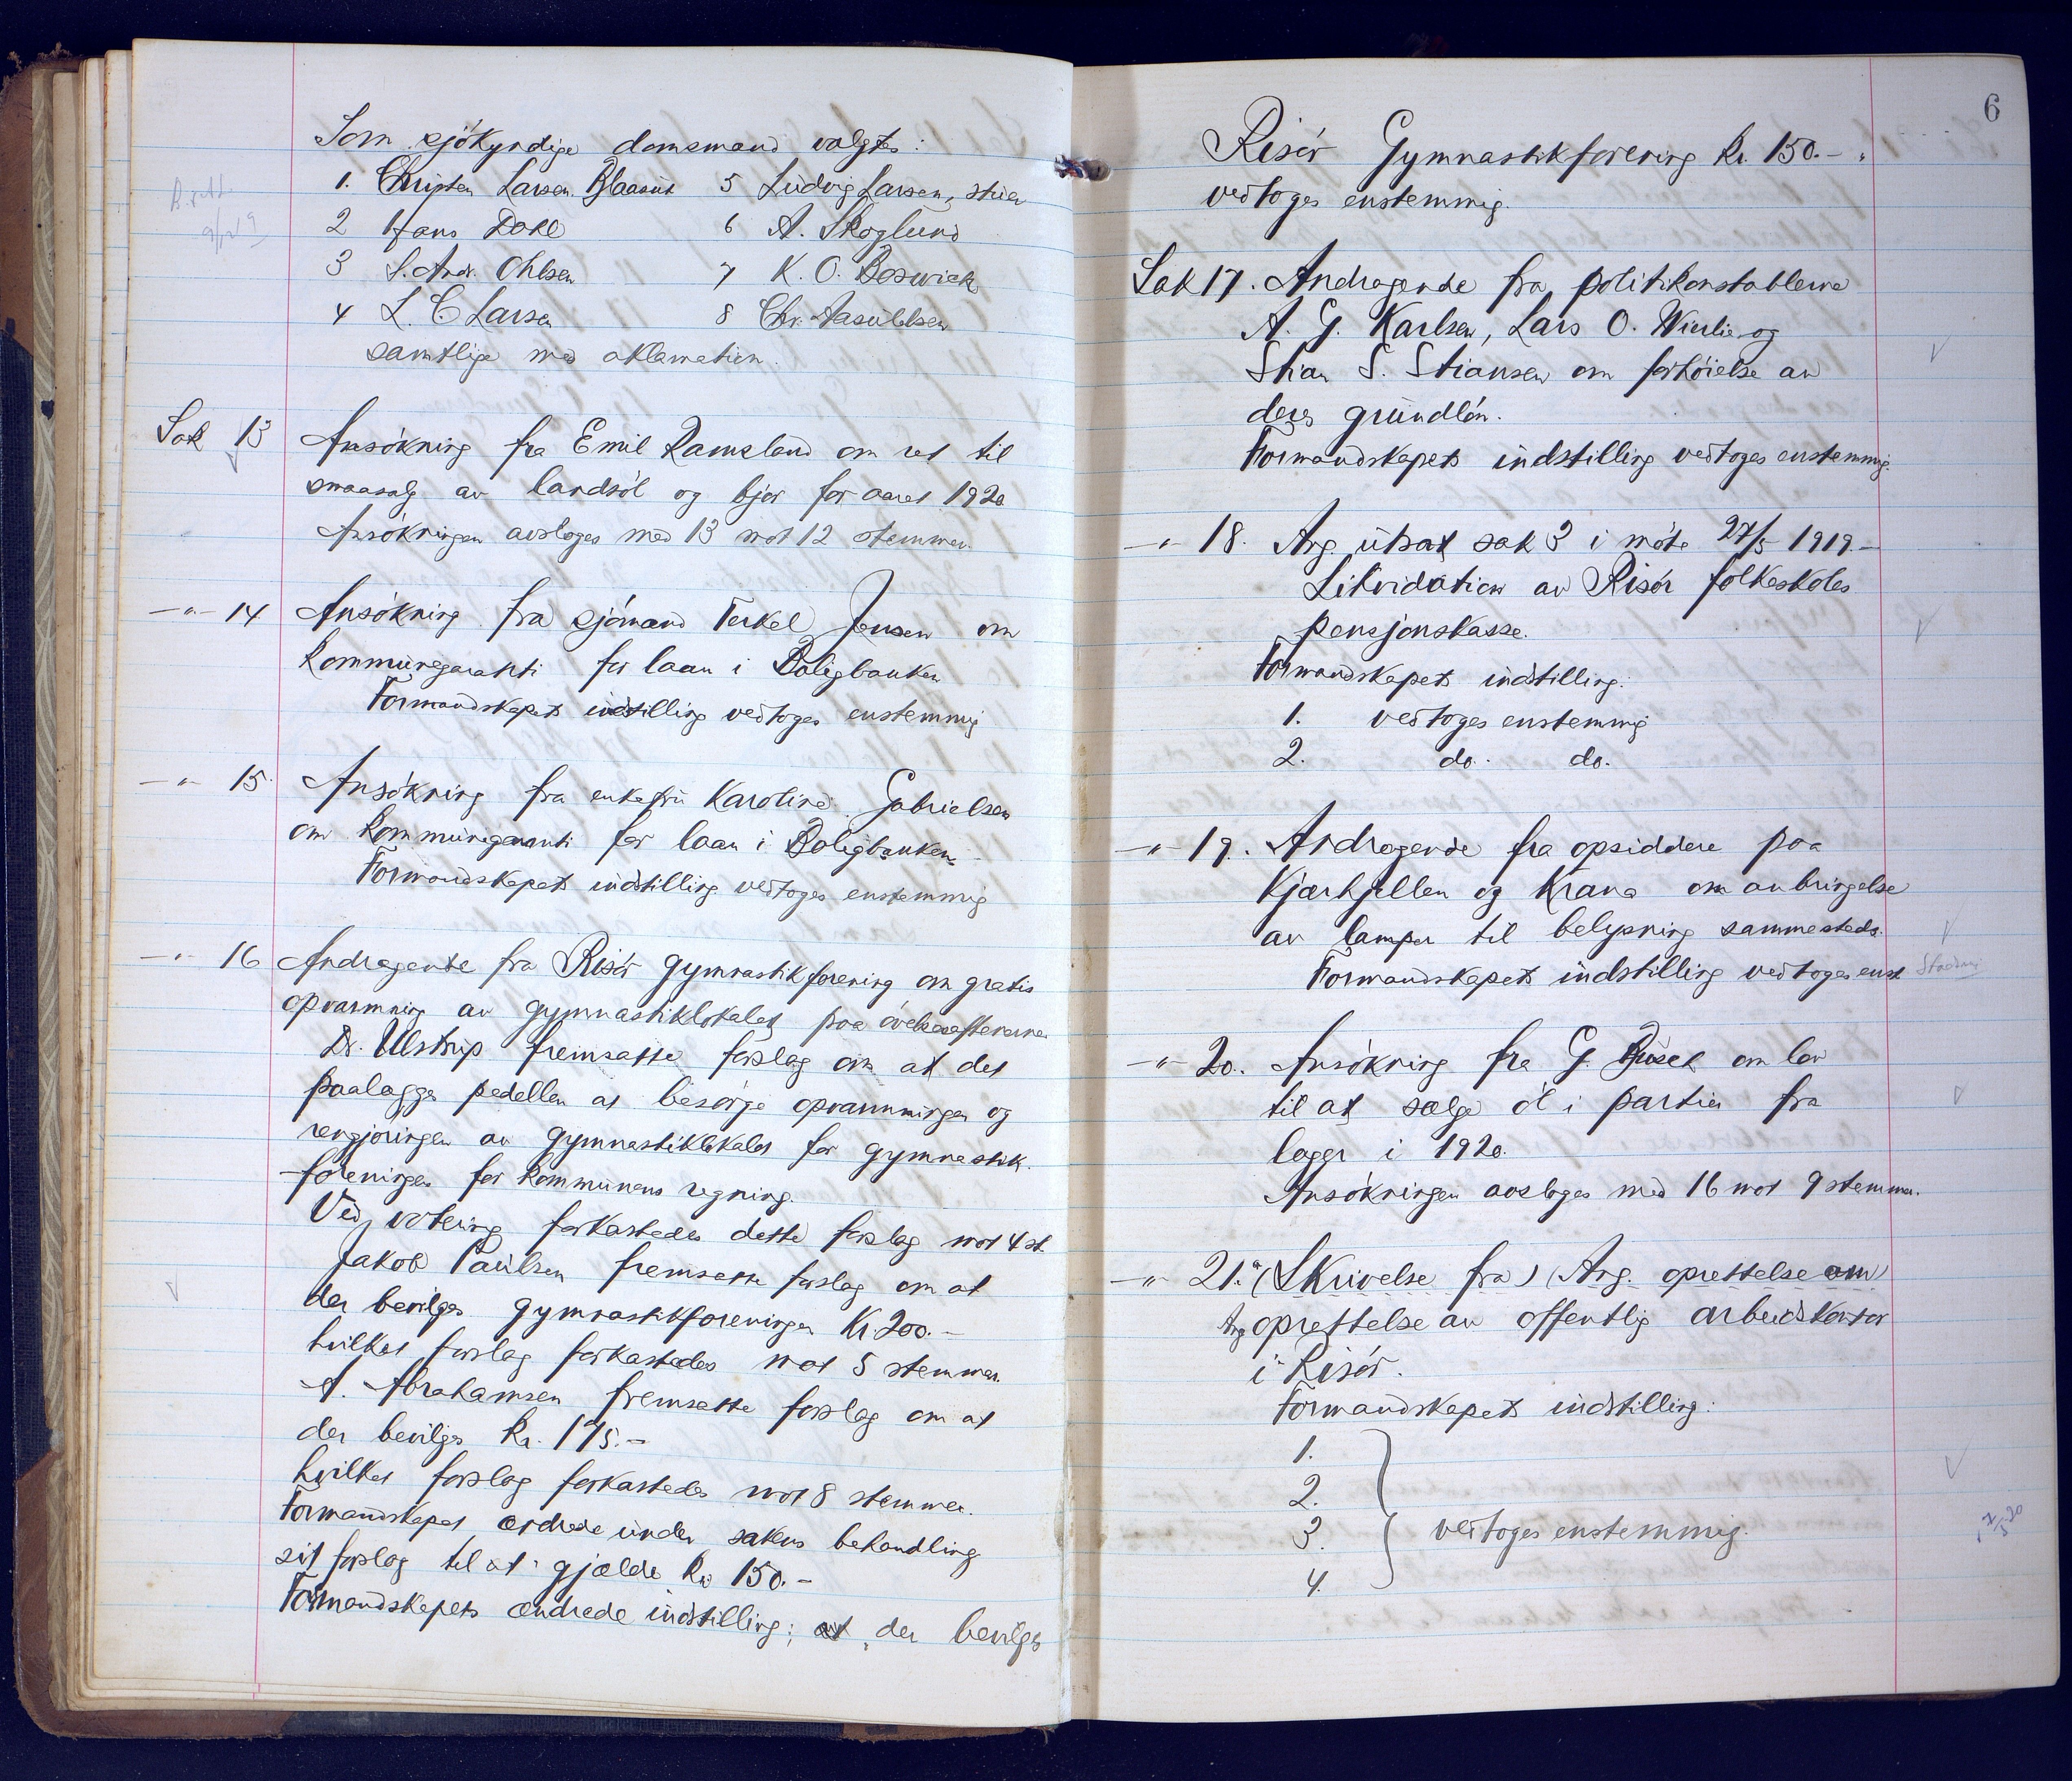 Som sjökyndige domsmænd valgtes:
1. Christen Larsen 5 Ludvig Larsen,
2 Hans Dahl 6 A. Skoglund
3 S. Andr. Ohlsen 7 K. O. Boswick
4 L. C Larsen 8 Chr.
samtlige med aklamation.
Sak 13 Ansökning fra Emil Ramsland om ret til
smaasalg av landsöl og bjor for aaret 1920
Ansökningen avsloges med 13 mot 12 stemmer.
-"- 14 Ansökning fra sjömand Terkel Jensen om
kommunegaranti for laan i Boligbanken
Formandskapets indstilling vedtoges enstemmig
-"- 15. Ansökning fra enkefru Karoline Gabrielsen
om kommunegaranti for laan i Boligbanken
Formandskapets indstilling vedtoges enstemmig
-"- 16 Andragende fra Risör gymnastikforening om gratis
opvarmning av gymnastiklokalet paa övelsesaftenerne
Dr. Ulstrup fremsatte forslag om at det
paalægges pedellen at besörge opvarmningen og
rengjöringen av gymnastiklokalet for gymnastik-
foreningen for kommunens regning.
Ved votering forkastedes dette forslag mot 4 st.
Jakob Paulsen fremsatte forslag om at
der bevilges gymnastikforeningen Kr. 200.-
hvilket forslag forkastedes mot 5 stemmer.
A. Abrahamsen fremsatte forslag om at
der bevilges Kr. 175.-
hvilket forslag forkastedes mot 8 stemmer.
Formandskapet ændrede under sakens behandling
sit forslag til at gjælde Kr 150.-
Formandskapets ændrede indstilling: at "der bevilges
6
Risör Gymnastikforening Kr. 150.-"
vedtoges enstemmig.
Sak 17. Andragende fra politikonstablerne
A. G. Karlsen, Lars O. Wierli og
Stian S. Stiansen om forhöielse av
deres grundlön.
Formandskapets indstilling vedtoges enstemmig.
-"- 18. Ang. utsat sak 3 i möte 27/5 1919.-
Likvidation av Risör folkeskoles
pensjonskasse.
Formandskapets indstilling:
1. vedtoges enstemmig
2. do. do.
-"- 19. Andragende fra opsiddere paa
Kjærhjellen og Krana om anbringelse
av lamper til belysning sammesteds.
Formandskapets indstilling vedtoges enst.
-"- 20. Ansökning fra G. Busch om lov
til at sælge öl i partier fra
lager i 1920.
Ansökningen avsloges med 16 mot 9 stemmer.
-"- 21. a (Skrivelse fra) (Ang. oprettelse om)
Ang oprettelse av offentlig arbeidskontor
i Risör.
Formandskapets indstilling:
1.
2.
3. vedtoges enstemmig.
4.